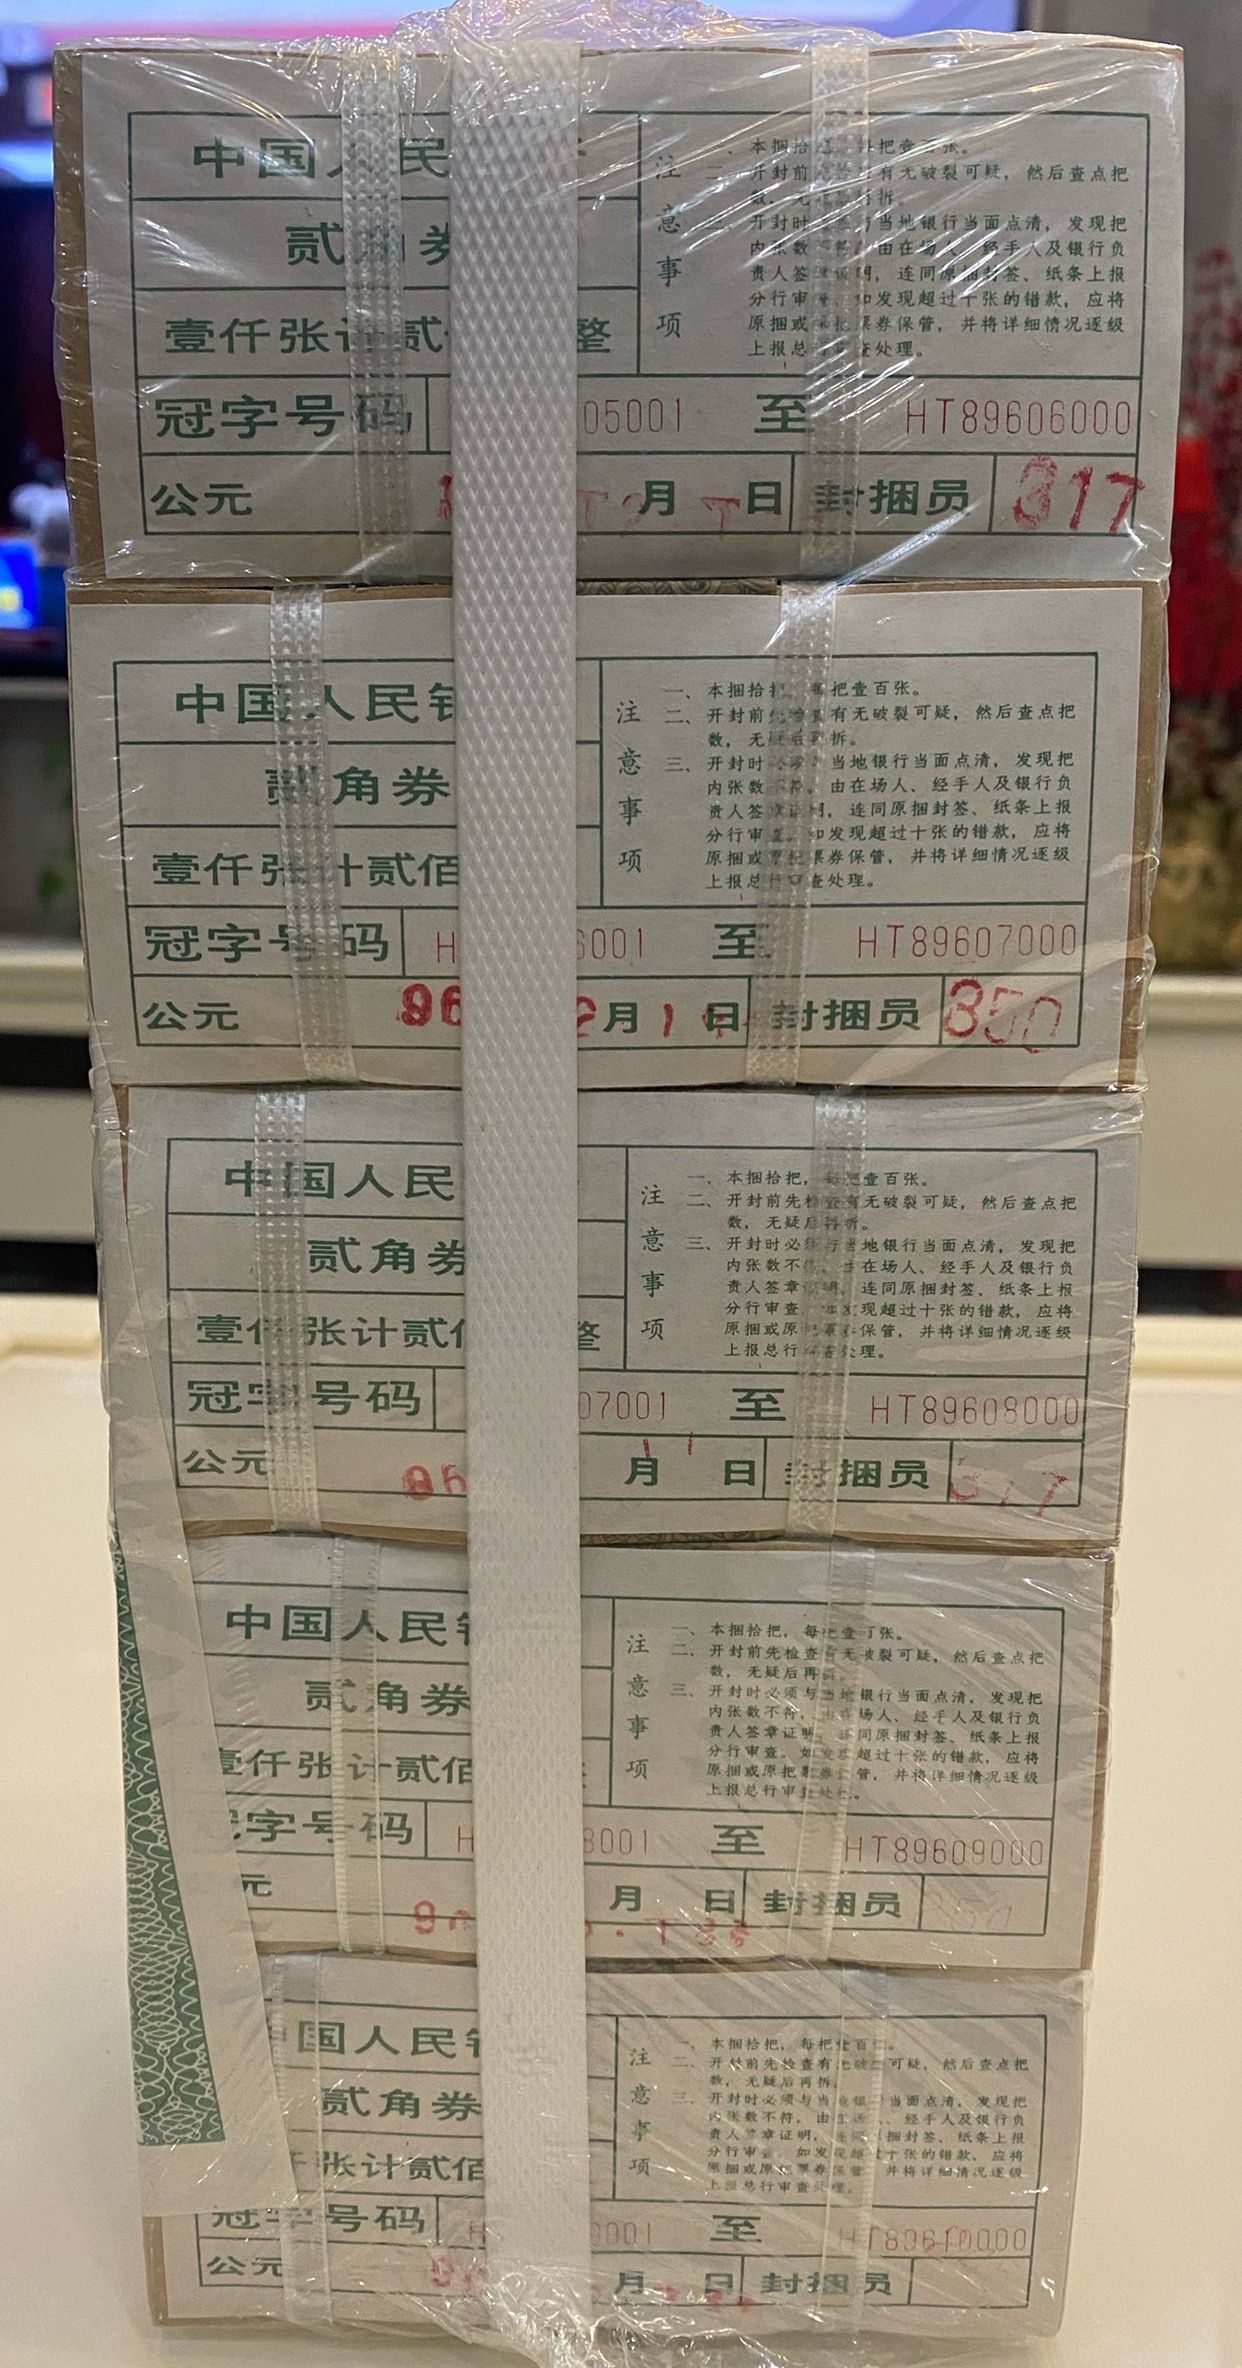 中国人民
贰角券
壹仟张计贰 整
冠字号码 05001 至 HT89606000
公元 月 日 封捆员 317
注意事项
一、本捆拾 每把壹百张。
二、开封前 有无破裂可疑，然后查点把
数，无 再拆。
三、开封时 与当地银行当面点清，发现把
内张数不符，由在场人、经手人及银行负
责人签章证明，连同原捆封签、纸条上报
分行审查。如发现超过十张的错款，应将
原捆或 票券保管，并将详细情况逐级
上报总 查处理。
中国人民银
贰角券
壹仟张计贰佰
冠字号码 H 6001 至 HT89607000
公元 96 2月 1 日 封捆员 350
注意事项
一、本捆拾把，每把壹百张。
二、开封前先检查有无破裂可疑，然后查点把
数，无疑后再拆。
三、开封时必须 当地银行当面点清，发现把
内张数不符，由在场人、经手人及银行负
责人签章证明，连同原捆封签、纸条上报
分行审查。如发现超过十张的错款，应将
原捆或 票券保管，并将详细情况逐级
上报总行审查处理。
中国人民
贰角券
壹仟张计贰佰 整
冠字号码 07001 至 HT89608000
公元 96 月 日 封捆员 317
注意事项
一、本捆拾把，每把壹百张。
二、开封前先检查有无破裂可疑，然后查点把
数，无疑后再拆。
三、开封时必须与当地银行当面点清，发现把
内张数不符，由在场人、经手人及银行负
责人签章证明，连同原捆封签、纸条上报
分行审查。如发现超过十张的错款，应将
原捆或原把票券保管，并将详细情况逐级
上报总行审查处理。
中国人民银
贰角券
壹仟张计贰佰
冠字号码 H 8001 至 HT89609000
元 月 日 封捆员 350
注意事项
一、本捆拾把，每把壹百张。
二、开封前先检查有无破裂可疑，然后查点把
数，无疑后再拆。
三、开封时必须与当地银行当面点清，发现把
内张数不符，由在场人、经手人及银行负
责人签章证明，连同原捆封签、纸条上报
分行审查。如发现超过十张的错款，应将
原捆或原把票券保管，并将详细情况逐级
上报总行审查处理。
中国人民银
贰角券
仟张计贰佰
冠字号码 H 0001 至 HT89610000
公元 月 日 封捆员
注意事项
一、本捆拾把，每把壹百张。
二、开封前先检查有无破裂可疑，然后查点把
数，无疑后再拆。
三、开封时必须与当地银行当面点清，发现把
内张数不符，由在场人、经手人及银行负
责人签章证明，连同原捆封签、纸条上报
分行审查。如发现超过十张的错款，应将
原捆或原把票券保管，并将详细情况逐级
上报总行审查处理。